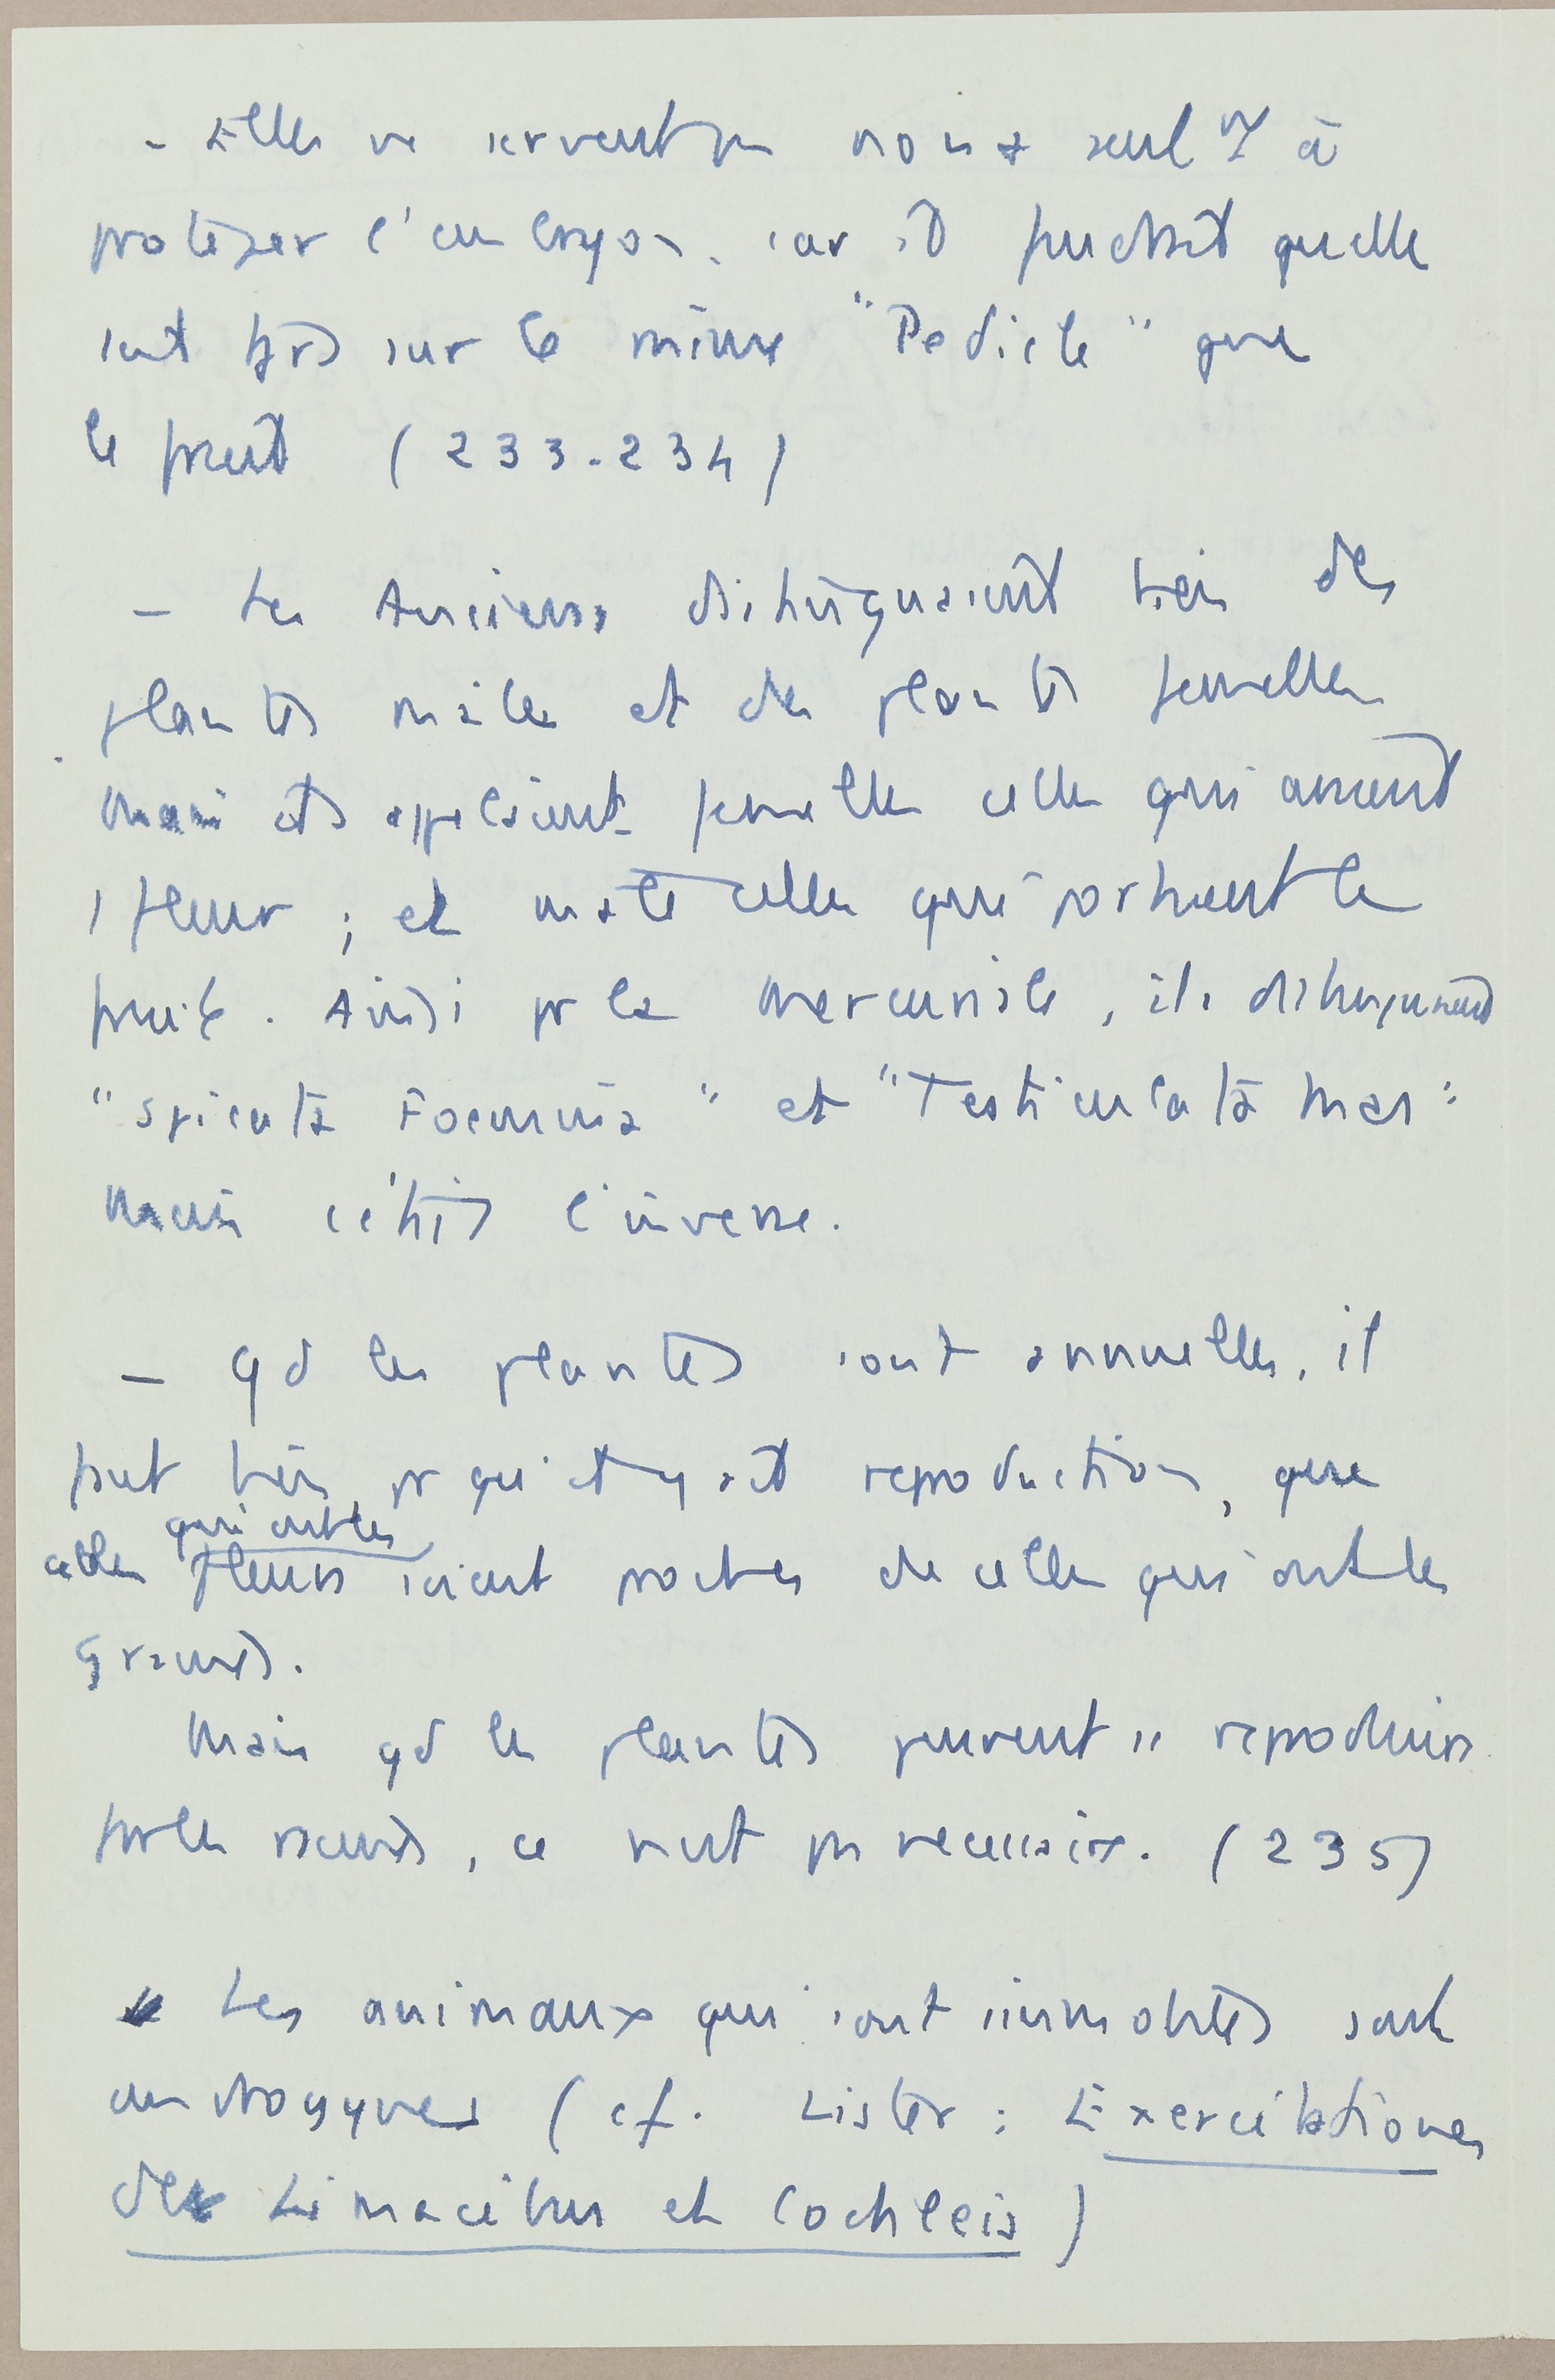 - Elles ne servent pas non + seulmt à
protéger l'embryon. car il faudrait qu'elles
soient tjrs sur le même "Pedicle" que
le fruit (233-234)
- Les Anciens distinguaient bien des
plantes mâles et des plantes femelles
Mais ils appelaient femelles celles qui avaient
1 fleur ; et mâle celles qui portaient le
fruit. Ainsi pr la Mercuriale, ils distinguaient
"Spicata Foemina" et "Testiculata Mas".
Mais c'était l'inverse.
- Qd les plantes sont annuelles, il
faut bien, pr qu'il y ait reproduction, que
celles qui ont les fleurs soient proches de celles qui ont les
graines.
Mais qd les plantes peuvent se reproduire
par les racines, ce n'est pas necessaire. (235)
- Les animaux qui sont immobiles sont
androgynes (cf. Lister : Exercitationes
de Limacibus et Cochleis)